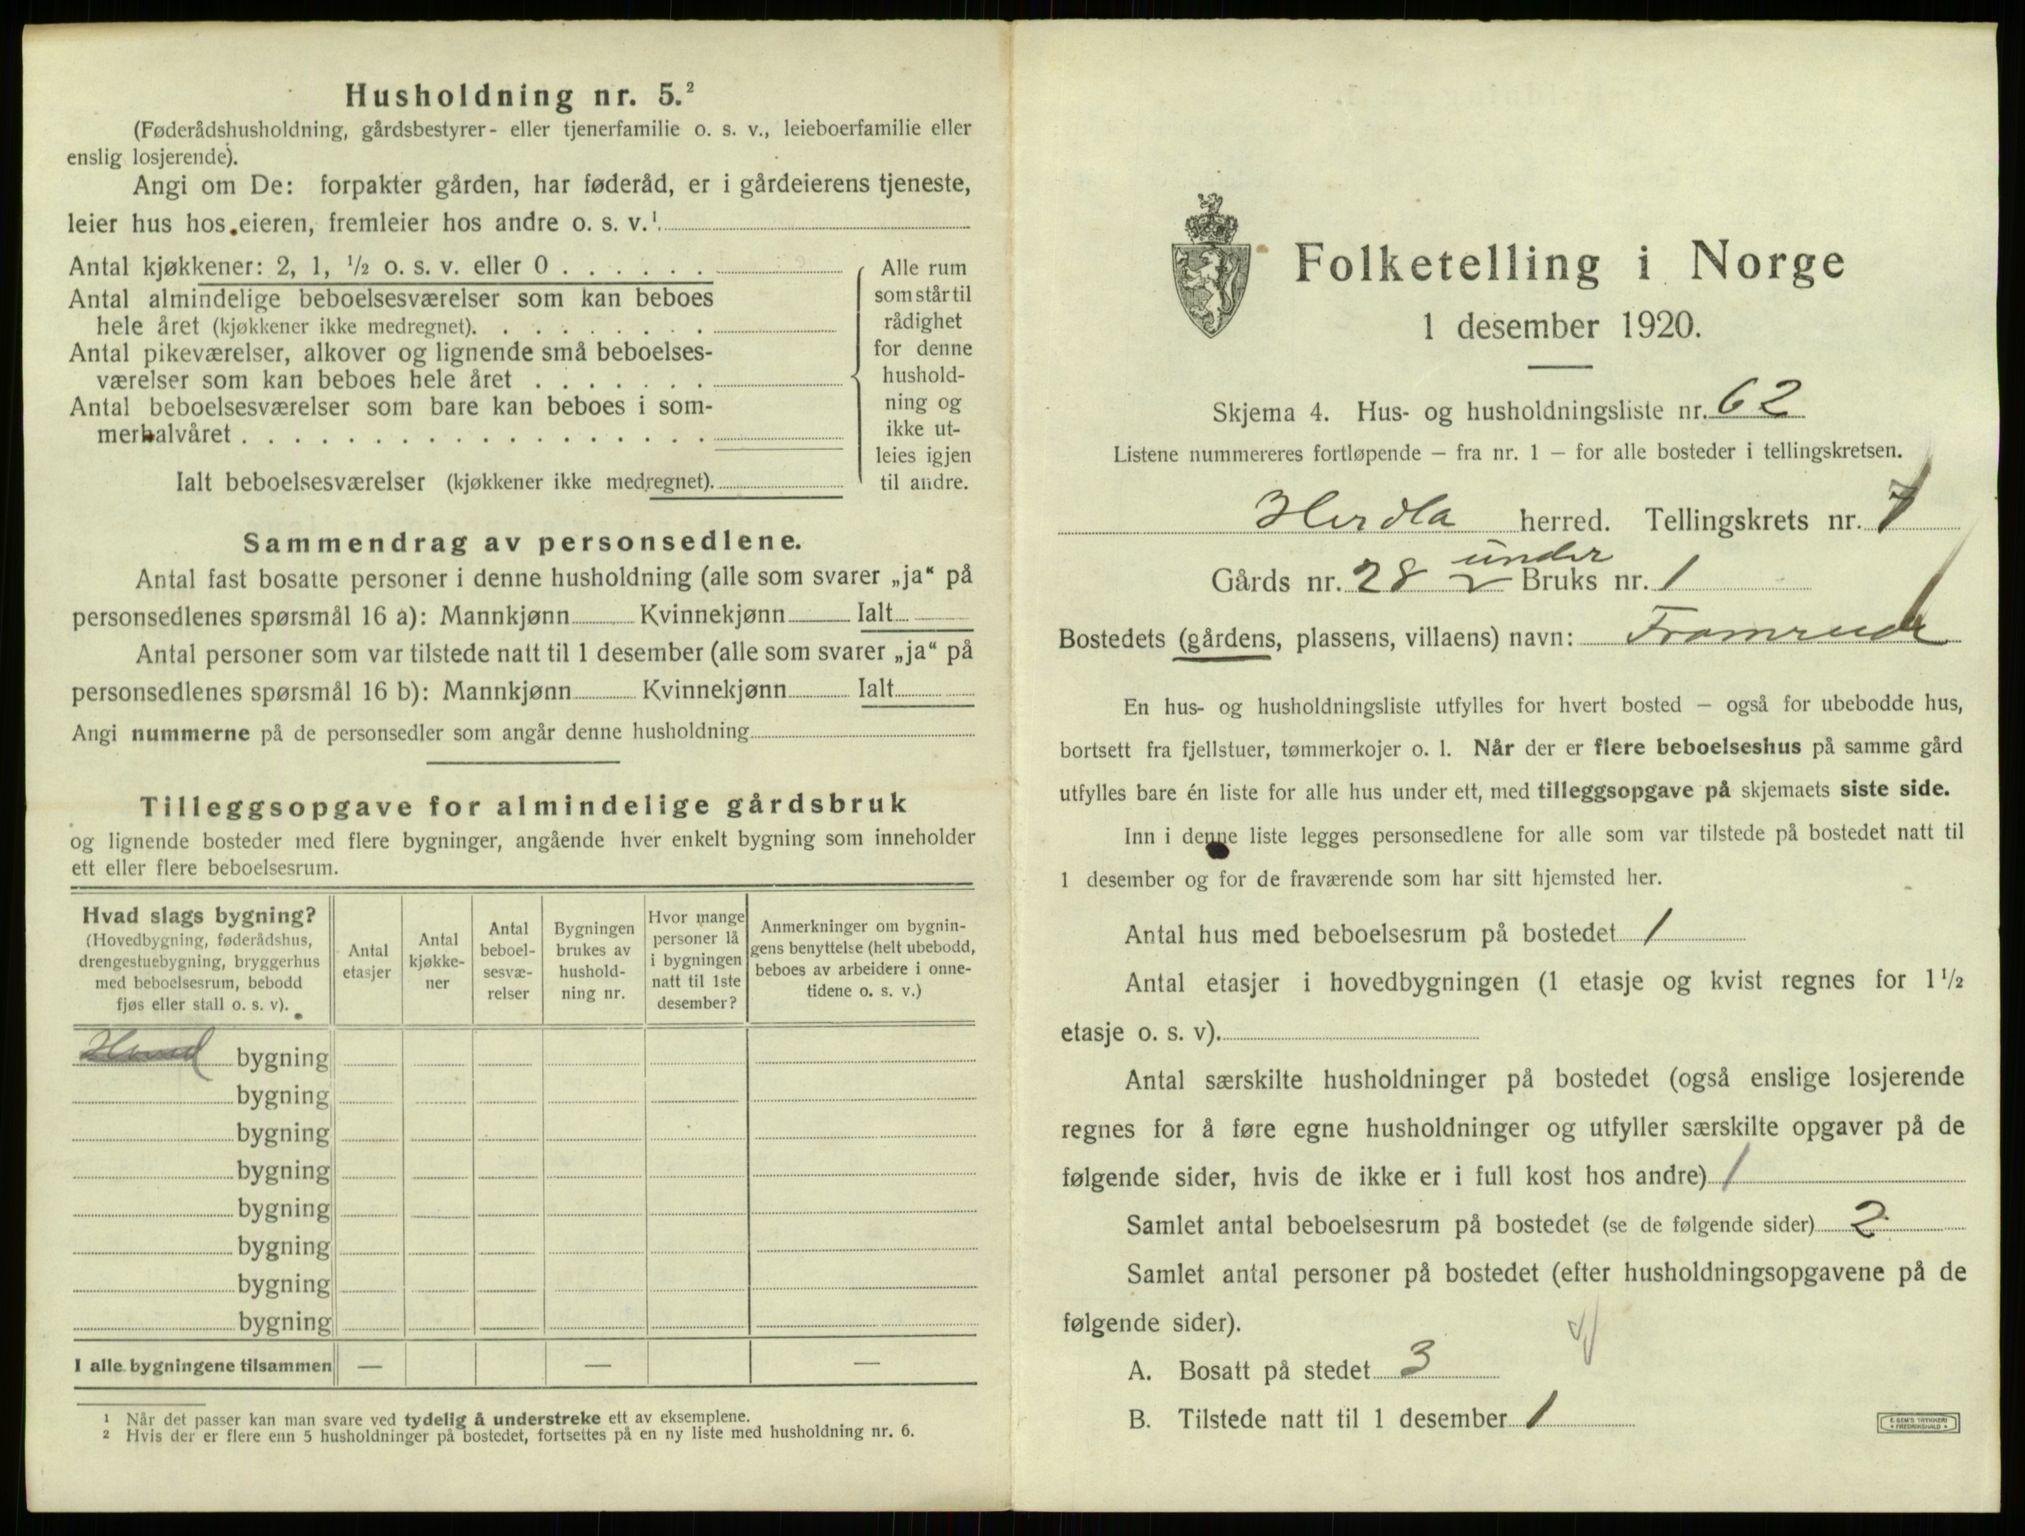 Husholdning nr. 5.²
(Føderådshusholdning, gårdsbestyrer- eller tjenerfamilie o. s. v., leieboerfamilie eller
enslig losjerende).
Angi om De: forpakter gården, har føderåd, er i gårdeierens tjeneste,
leier hus hos eieren, fremleier hos andre o. s. v.¹
Antal kjøkkener: 2, 1, ½ o. s. v. eller 0 . . . . . .
Antal almindelige beboelsesværelser som kan beboes
hele året (kjøkkener ikke medregnet). . . . . . . . .
Antal pikeværelser, alkover og lignende små beboelses-
værelser som kan beboes hele året . . . . . . .
Antal beboelsesværelser som bare kan beboes i som-
merhalvåret . . . . . . . . . . . . . . . . . .
Ialt beboelsesværelser (kjøkkener ikke medregnet).
Alle rum
som står til
rådighet
for denne
hushold-
ning og
ikke ut-
leies igjen
til andre.
Sammendrag av personsedlene.
Antal fast bosatte personer i denne husholdning (alle som svarer „ja“ på
personsedlenes spørsmål 16 a): Mannkjønn Kvinnekjønn Ialt
Antal personer som var tilstede natt til 1 desember (alle som svarer „ja“ på
personsedlenes spørsmål 16 b): Mannkjønn Kvinnekjønn Ialt
Angi nummerne på de personsedler som angår denne husholdning
Tilleggsopgave for almindelige gårdsbruk
og lignende bosteder med flere bygninger, angående hver enkelt bygning som inneholder
ett eller flere beboelsesrum.
Hvad slags bygning?
(Hovedbygning, føderådshus,
drengestuebygning, bryggerhus
med beboelsesrum, bebodd
fjøs eller stall o. s. v).
Antal
etasjer
Antal
kjøkke-
ner
Antal
beboel-
sesvæ-
relser
Bygningen
brukes av
hushold-
ning nr.
Hvor mange
personer lå
i bygningen
natt til 1ste
desember?
Anmerkninger om bygnin-
gens benyttelse (helt ubebodd,
beboes av arbeidere i onne-
tidene o. s. v.)
bygning
bygning
bygning
bygning
bygning
bygning
bygning
bygning
I alle bygningene tilsammen — — —
¹ Når det passer kan man svare ved tydelig å understreke ett av eksemplene.
² Hvis der er flere enn 5 husholdninger på bostedet, fortsettes på en ny liste med husholdning nr. 6.
Folketelling i Norge
1 desember 1920.
Skjema 4. Hus- og husholdningsliste nr. 62
Listene nummereres fortløpende – fra nr. 1 – for alle bosteder i tellingskretsen.
Herdla herred. Tellingskrets nr. 7
under
Gårds nr. 28 Bruks nr. 1
Bostedets (gårdens, plassens, villaens) navn:
En hus- og husholdningsliste utfylles for hvert bosted – også for ubebodde hus,
bortsett fra fjellstuer, tømmerkojer o. l. Når der er flere beboelseshus på samme gård
utfylles bare én liste for alle hus under ett, med tilleggsopgave på skjemaets siste side.
Inn i denne liste legges personsedlene for alle som var tilstede på bostedet natt til
1 desember og for de fraværende som har sitt hjemsted her.
Antal hus med beboelsesrum på bostedet 1
Antal etasjer i hovedbygningen (1 etasje og kvist regnes for 1½
etasje o. s. v).
Antal særskilte husholdninger på bostedet (også enslige losjerende
regnes for å føre egne husholdninger og utfyller særskilte opgaver på de
følgende sider, hvis de ikke er i full kost hos andre) 1
Samlet antal beboelsesrum på bostedet (se de følgende sider) 2
Samlet antal personer på bostedet (efter husholdningsopgavene på de
følgende sider).
A. Bosatt på stedet 3
B. Tilstede natt til 1 desember 1
E. SEM'S TRYKKERI
FREDRIKSHALD